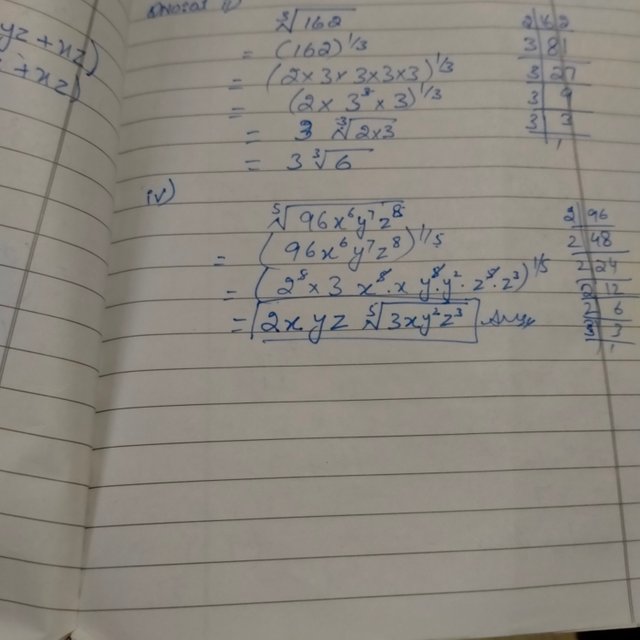 yz + xz)
+ xz)
∛162
= (162)^1/3
= (2×3×3×3×3)^1/3
= (2× 3^3 × 3)^1/3
= 3 ∛2×3
= 3 ∛6
2 162
3 81
3 27
3 9
3 3
1
iv)
⁵√96x⁶y⁷z⁸
= (96x⁶y⁷z⁸)^1/5
= (2⁵ × 3 x⁵·x y⁵·y²· z⁵·z³)^1/5
= 2xyz ⁵√3xy²z³ Ans
2 96
2 48
2 24
2 12
2 6
3 3
1